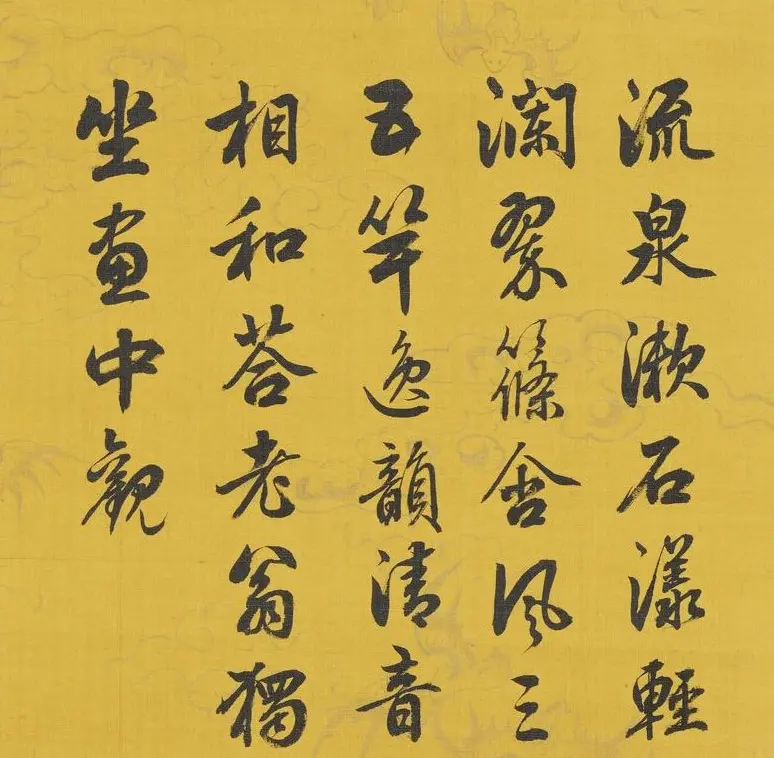 流泉漱石漾輕
瀾翠篠含風三
五竿逸韻清音
相和荅老翁獨
坐畫中觀